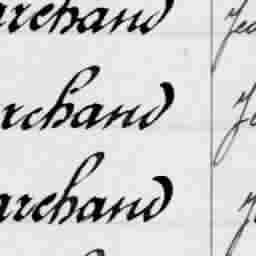 archand
archand
archand